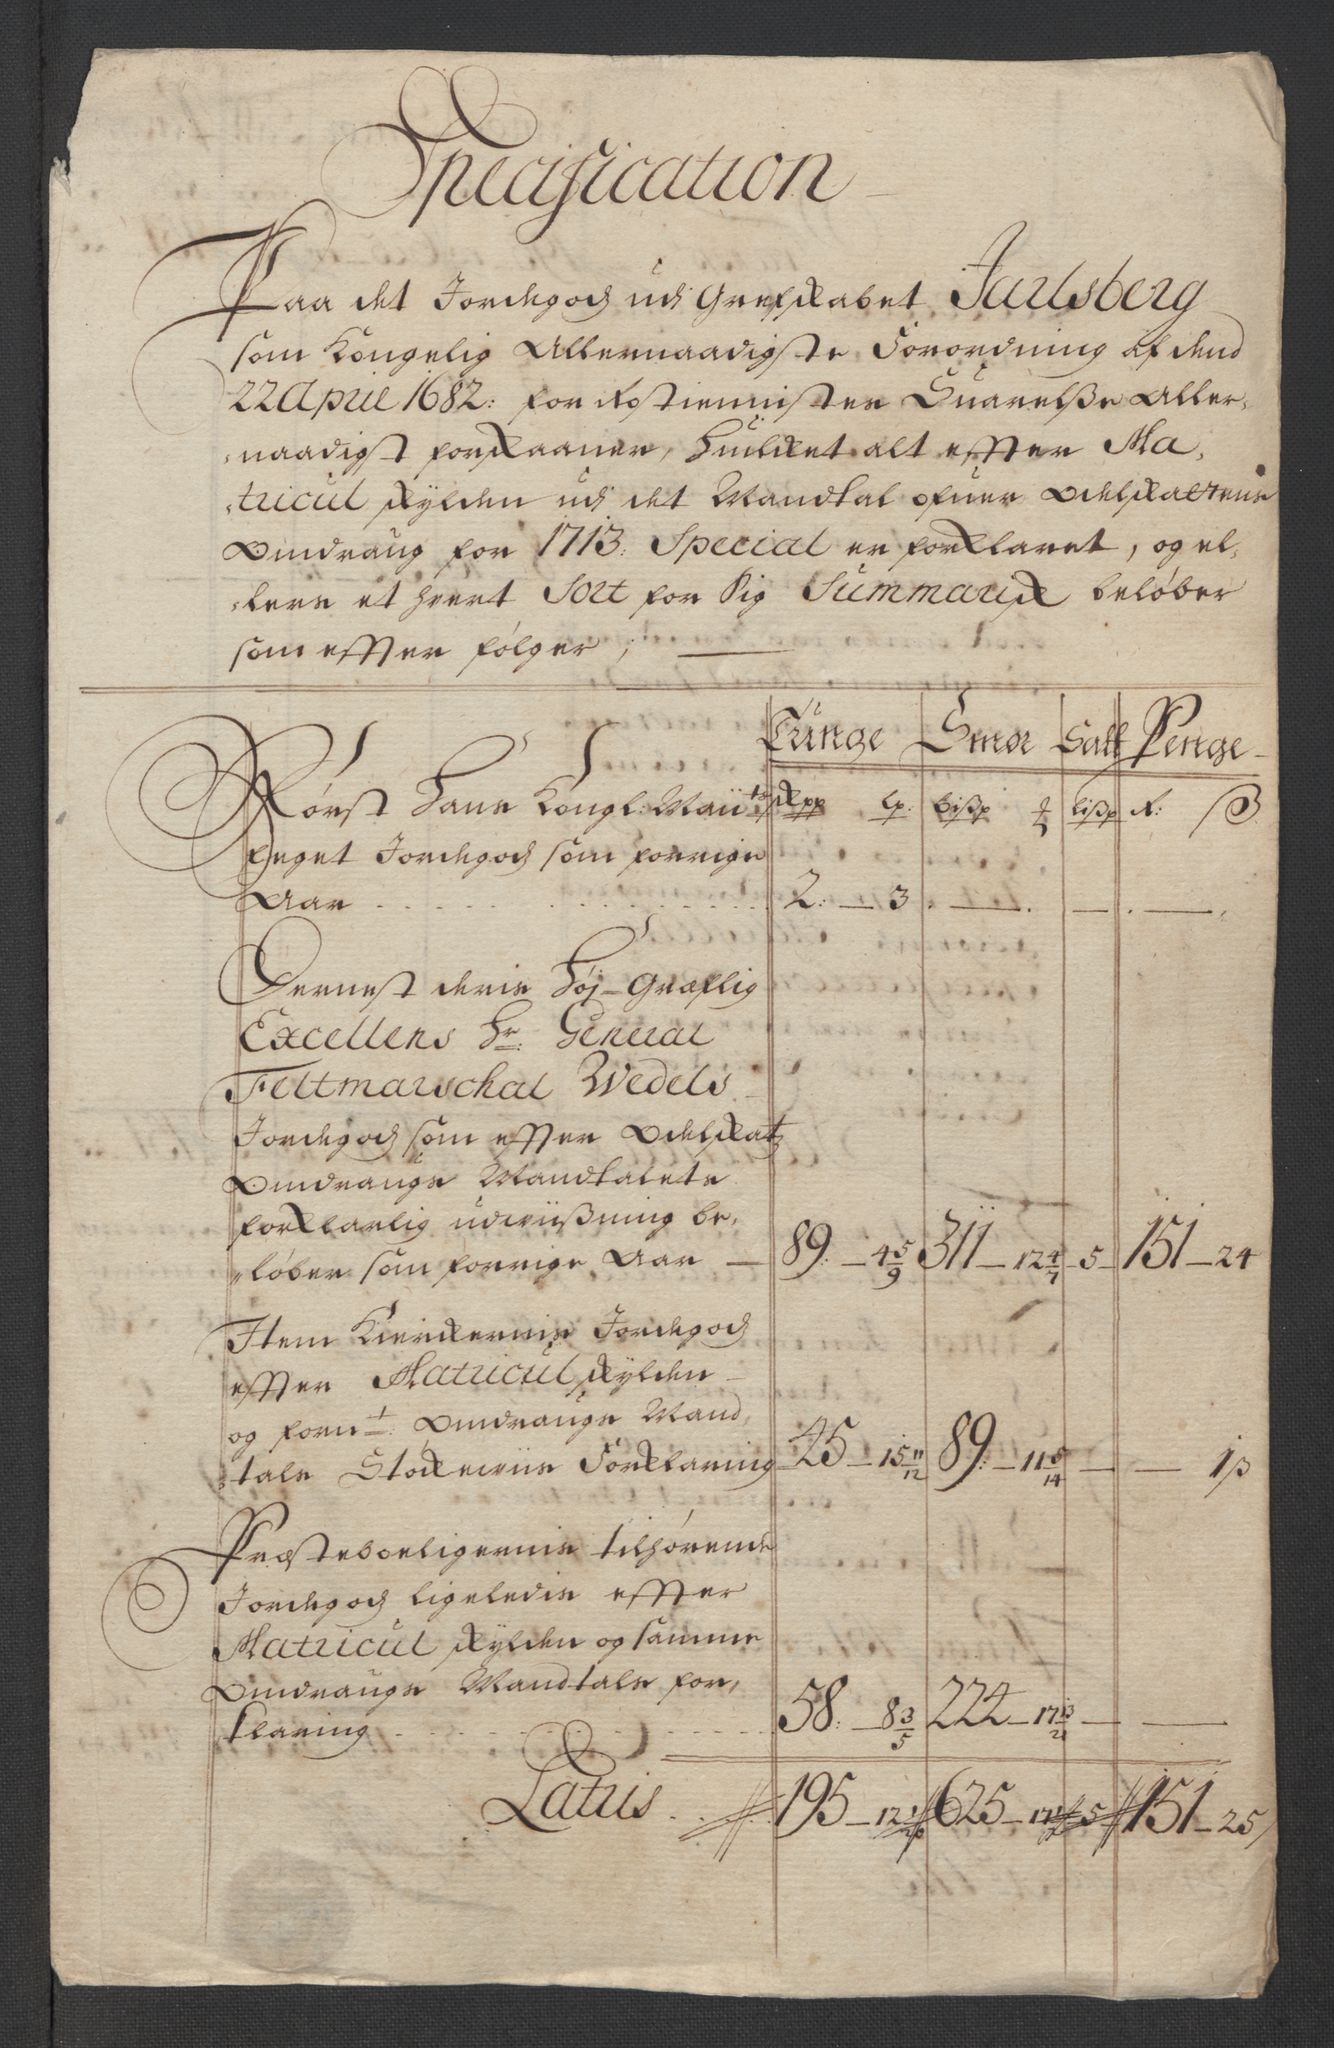 Specification
Paa det Jordegods udi Grefskabet Jarlsberg
som Kongelig Allernaadigste Forordning af dend
22 April 1682: for Rostienniste Suarelsse Aller,
,naadigst forskaaner, huilket alt effter Ma,
,tricul skylden udi det Mandtal ofuer Odelskattens
Omdraug for 1713: Special er forklaret, og el,
,lers et hvert Sort for sig Summarisk beløber
som effter følger;
Tunge Smør Salt Penge
Først Hans Kongl: May:ts skpp lp: bissp lissp r: s
Eeget Jordegods som forrige
Aar . . . 2: — 3 . — . — . — .
Dernest deris Høj-Græflig
Excellens Hr: General
Feltmarschal Wedels
Jordegods som effter Odelskatz
Omdraugs Mandtalets
forklarlig udviissning be,
,løber som forrige Aar — 89: — 4 5/9 311 — 12 4/7 — 5 — 151 — 24
Item Kierkernis Jordegods
effter Matricul skylden
og fornt: Omdraugs Mand,
,tals Stockeviis Forklaring 45 — 15 11/12 89: — 11 5/14 — — 1s
Præsteboeligernis tilhørende
Jordegods ligeledis effter
Matricul skylden og samme
Omdraugs Mandtals for,
klaring . . . 58: — 8 3/5 224 — 17 13/21 — —
Latris . . 195 — 12 625 — 17 5 151 — 25